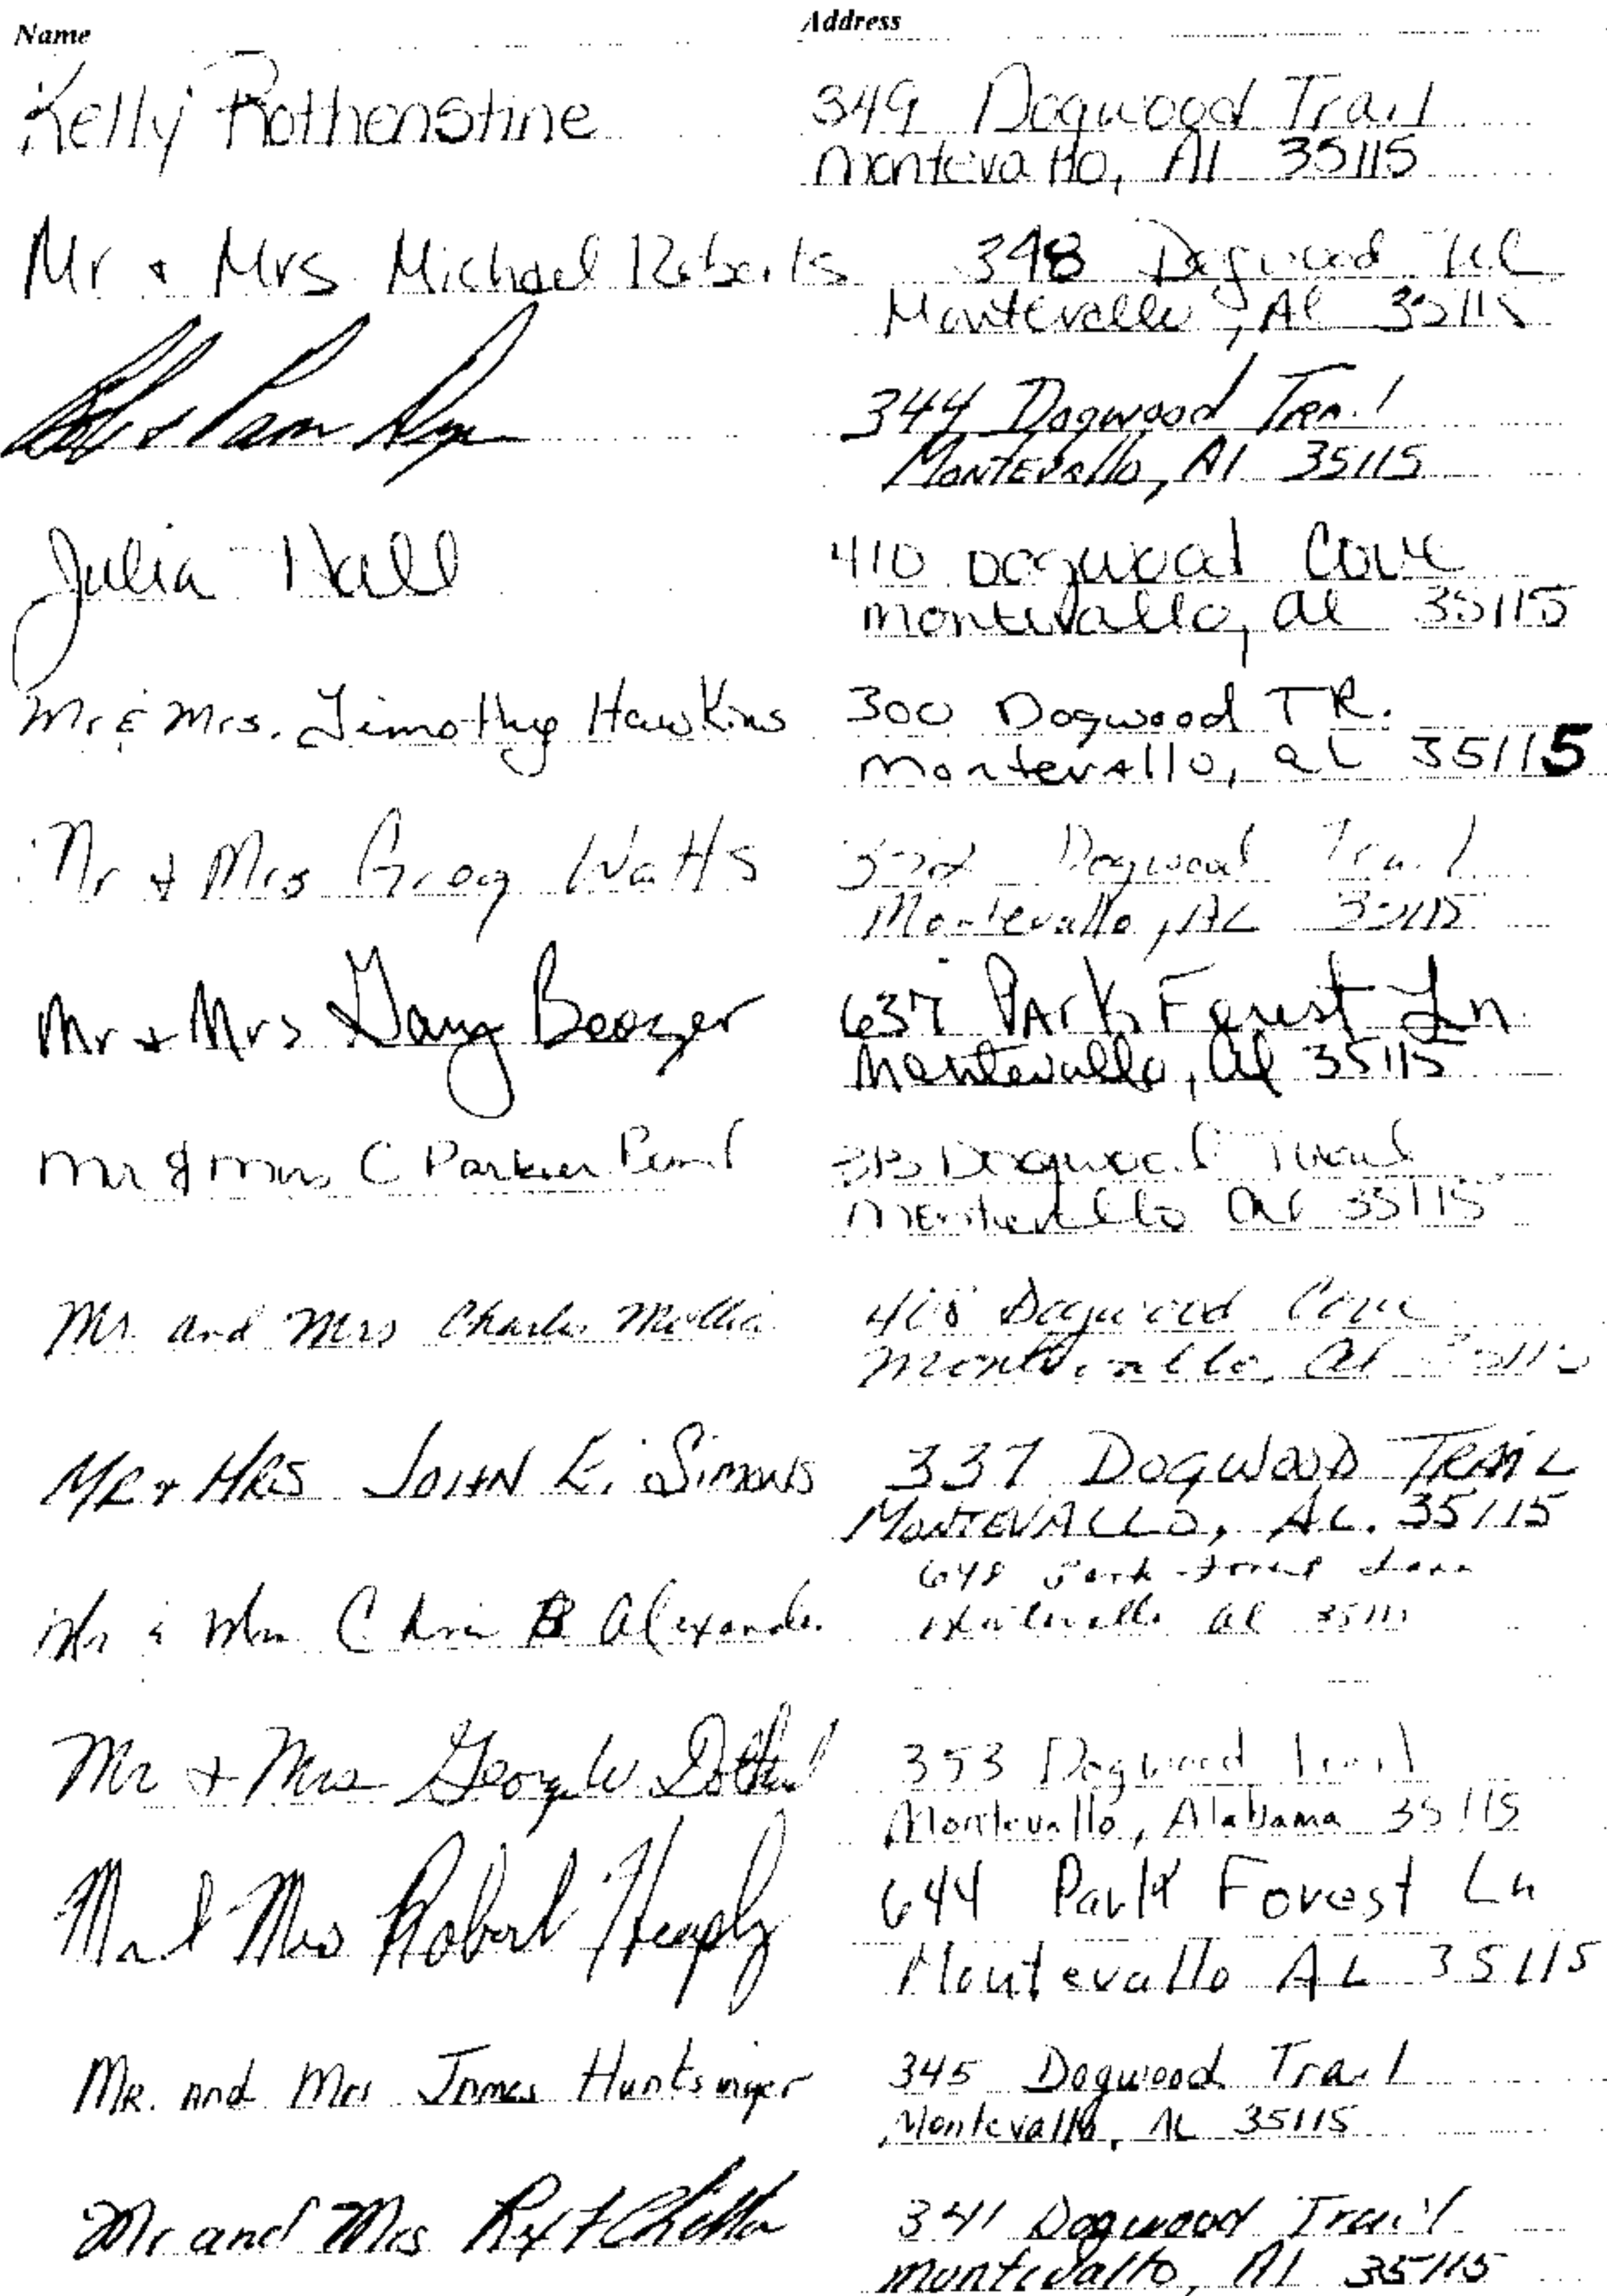 Name Address
Kelly Rothenstine 349 Dogwood Trail
Montevallo, Al 35115
Mr + Mrs Michael Roberts 348 Dogwood
Montevallo, Al 35115
& Pam 344 Dogwood Trail
Montevallo, Al 35115
Julia Hall 410 Dogwood Cove
Montevallo, Al 35115
Mr & Mrs. Timothy Hawkins 300 Dogwood TR.
Montevallo, al 35115
Mr + Mrs Greg Watts Dogwood Trail
Montevallo, AL 35115
Mr + Mrs Gary Boozer 637 Park Forest Ln
Montevallo, Al 35115
Mr & Mrs C Parker Dogwood Trail
Montevallo Al 35115
Mr. and Mrs Charles 408 Dogwood Cove
Montevallo, Al 35115
MR + MRS JOHN E. Simons 337 DOGWOOD TRAIL
MONTEVALLO, AL. 35115
648 Park Forest Lane
Mr & Mrs Chris B Alexander Montevallo Al 35115
Mr + Mrs George W 353 Dogwood Trail
Montevallo, Alabama 35115
Mr & Mrs Robert Heaply 644 Park Forest Ln
Montevallo AL 35115
MR. and Mrs James Huntsinger 345 Dogwood Trail
Montevallo, AL 35115
Mr and Mrs 341 Dogwood Trail
Montevallo, Al 35115